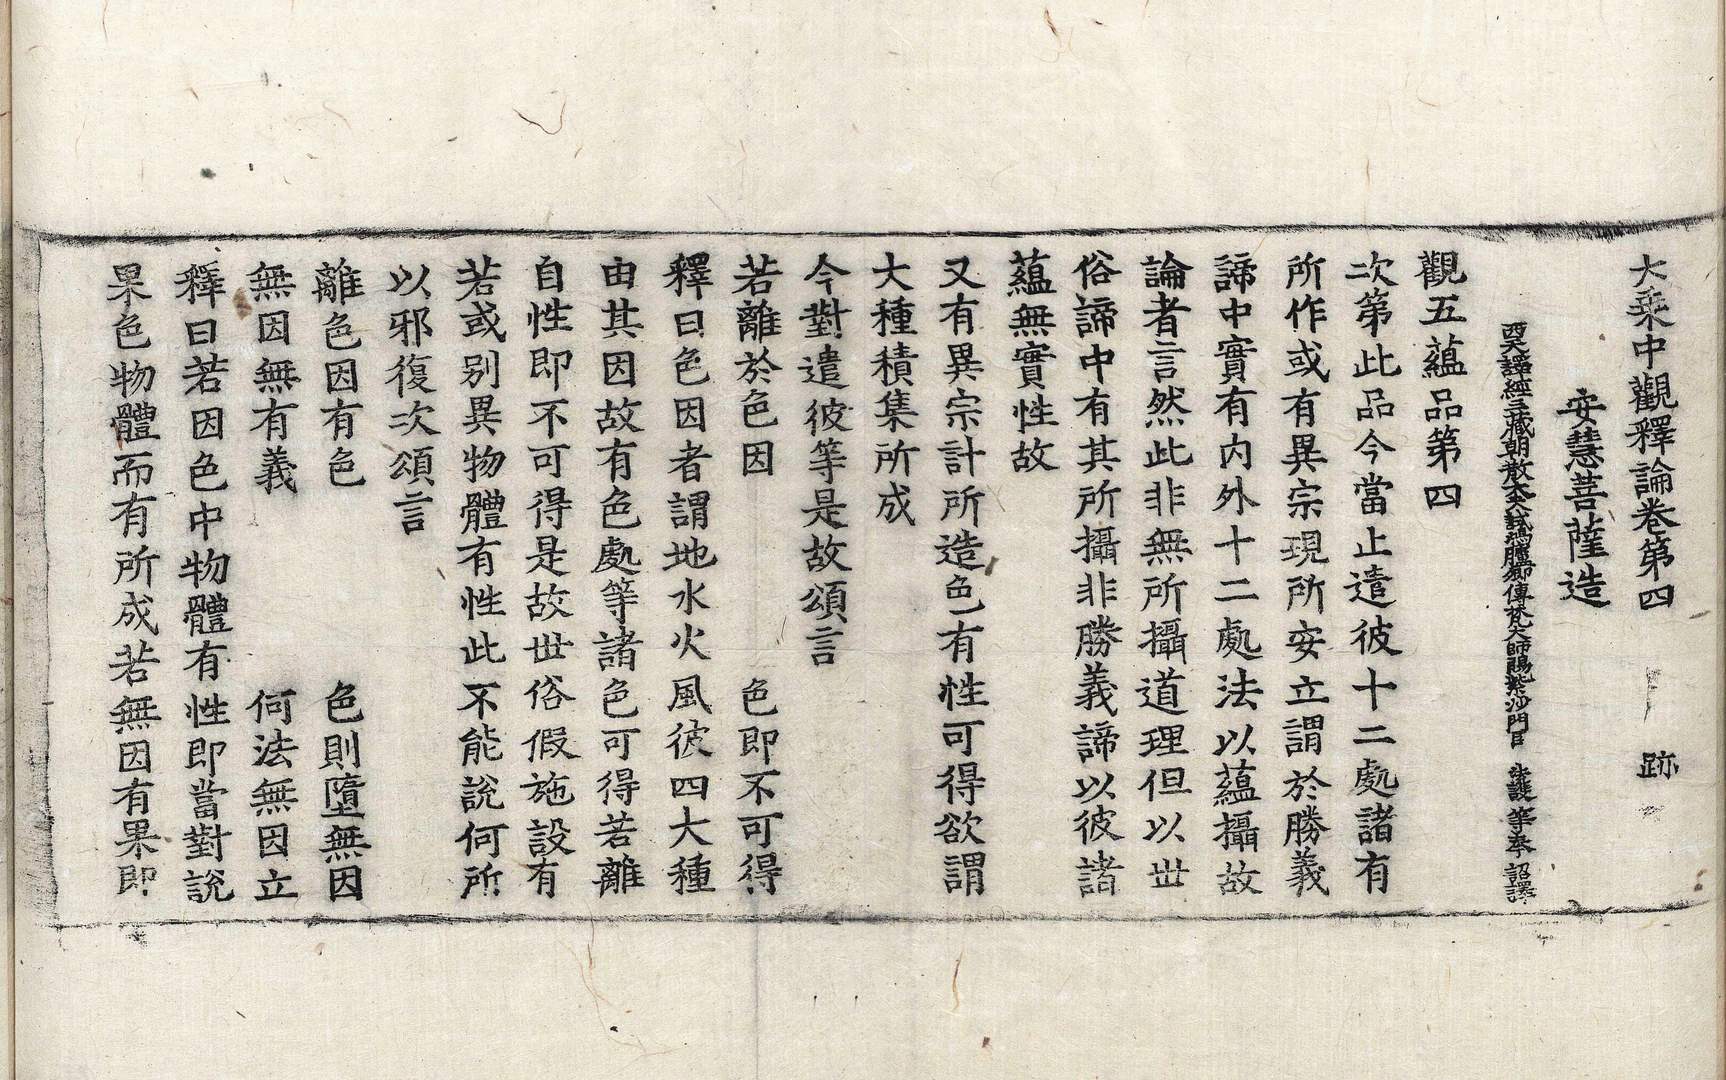 大乘中觀釋論卷第四 跡
安慧菩薩造
譯經三藏朝散大夫試鴻臚卿傳梵大師賜紫沙門臣 法護 等奉 詔譯
觀五蘊品第四
次第此品今當止遣彼十二處諸有
所作或有異宗現所安立謂於勝義
諦中實有内外十二處法以蘊攝故
論者言然此非無所攝道理但以世
俗諦中有其所攝非勝義諦以彼諸
蘊無實性故
又有異宗計所造色有性可得欲謂
大種積集所成
今對遣彼等是故頌言
若離於色因 色即不可得
釋曰色因者謂地水火風彼四大種
由其因故有色處等諸色可得若離
自性即不可得是故世俗假施設有
若或别異物體有性此不能說何所
以邪復次頌言
離色因有色 色則墮無因
無因無有義 何法無因立
釋曰若因色中物體有性即當對說
果色物體而有所成若無因有果即